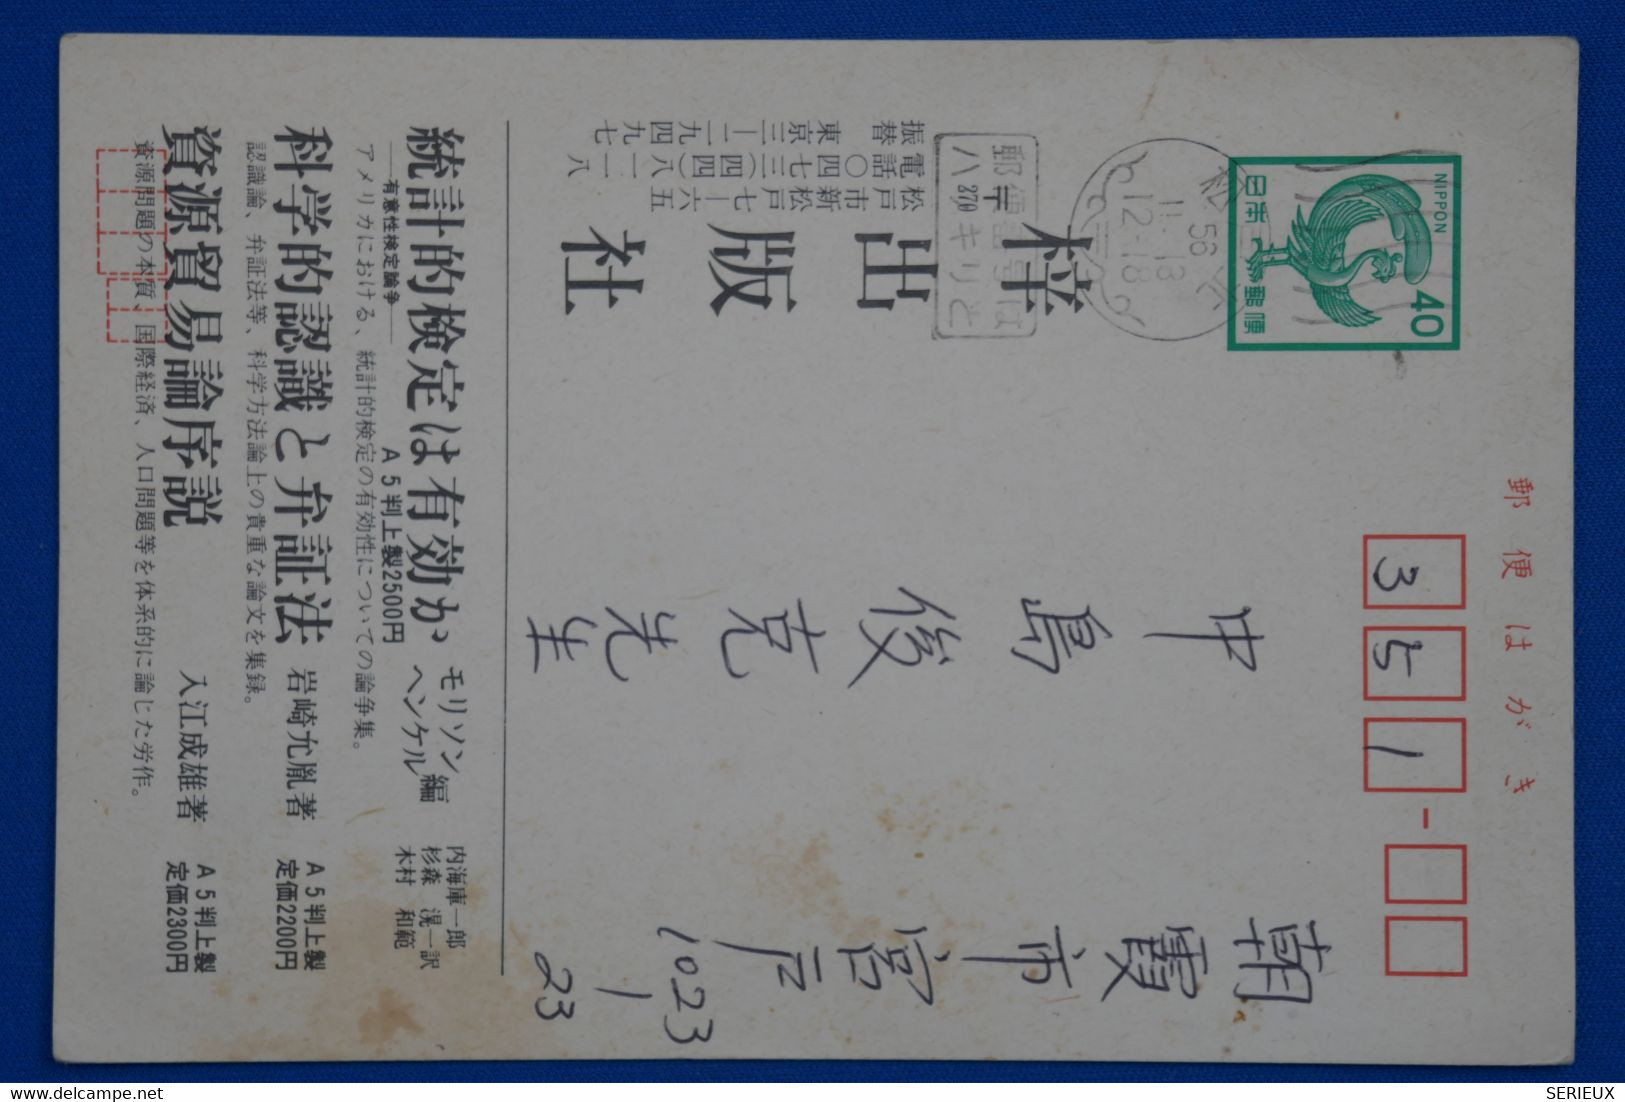 郵便はがき
NIPPON
40
日本郵便
351-
松戸
56
11.13
12-18
郵便番号は
ハッキリと
270
朝霞市宮戸
1023-23
中島俊克先生
梓出版社
松戸市新松戸七ー六五
電話〇四七三(四四)八一一八
振替東京三ー二一九四九七
統計的検定は有効か
―有意性検定論争―
モリソン
ヘンケル編
内海庫一郎
杉森滉一訳
木村和範
A5判上製2500円
アメリカにおける、統計的検定の有効性についての論争集。
科学的認識と弁証法
岩崎允胤著
A5判上製
定価2200円
認識論、弁証法等、科学方法論上の貴重な論文を集録。
資源貿易論序説
入江成雄著
A5判上製
定価2300円
資源問題の本質、国際経済、人口問題等を体系的に論じた労作。
SERIEUX